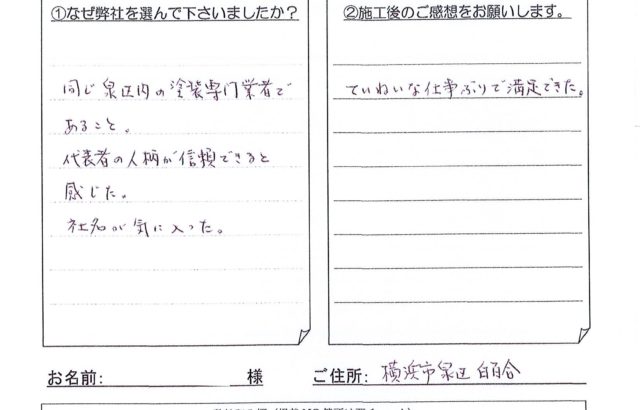 ①なぜ弊社を選んで下さいましたか？
同じ泉区内の塗装専門業者で
あること。
代表者の人柄が信頼できると
感じた。
社名が気に入った。
②施工後のご感想をお願いします。
ていねいな仕事ぶりで満足できた。
お名前: 様
ご住所: 横浜市泉区白百合